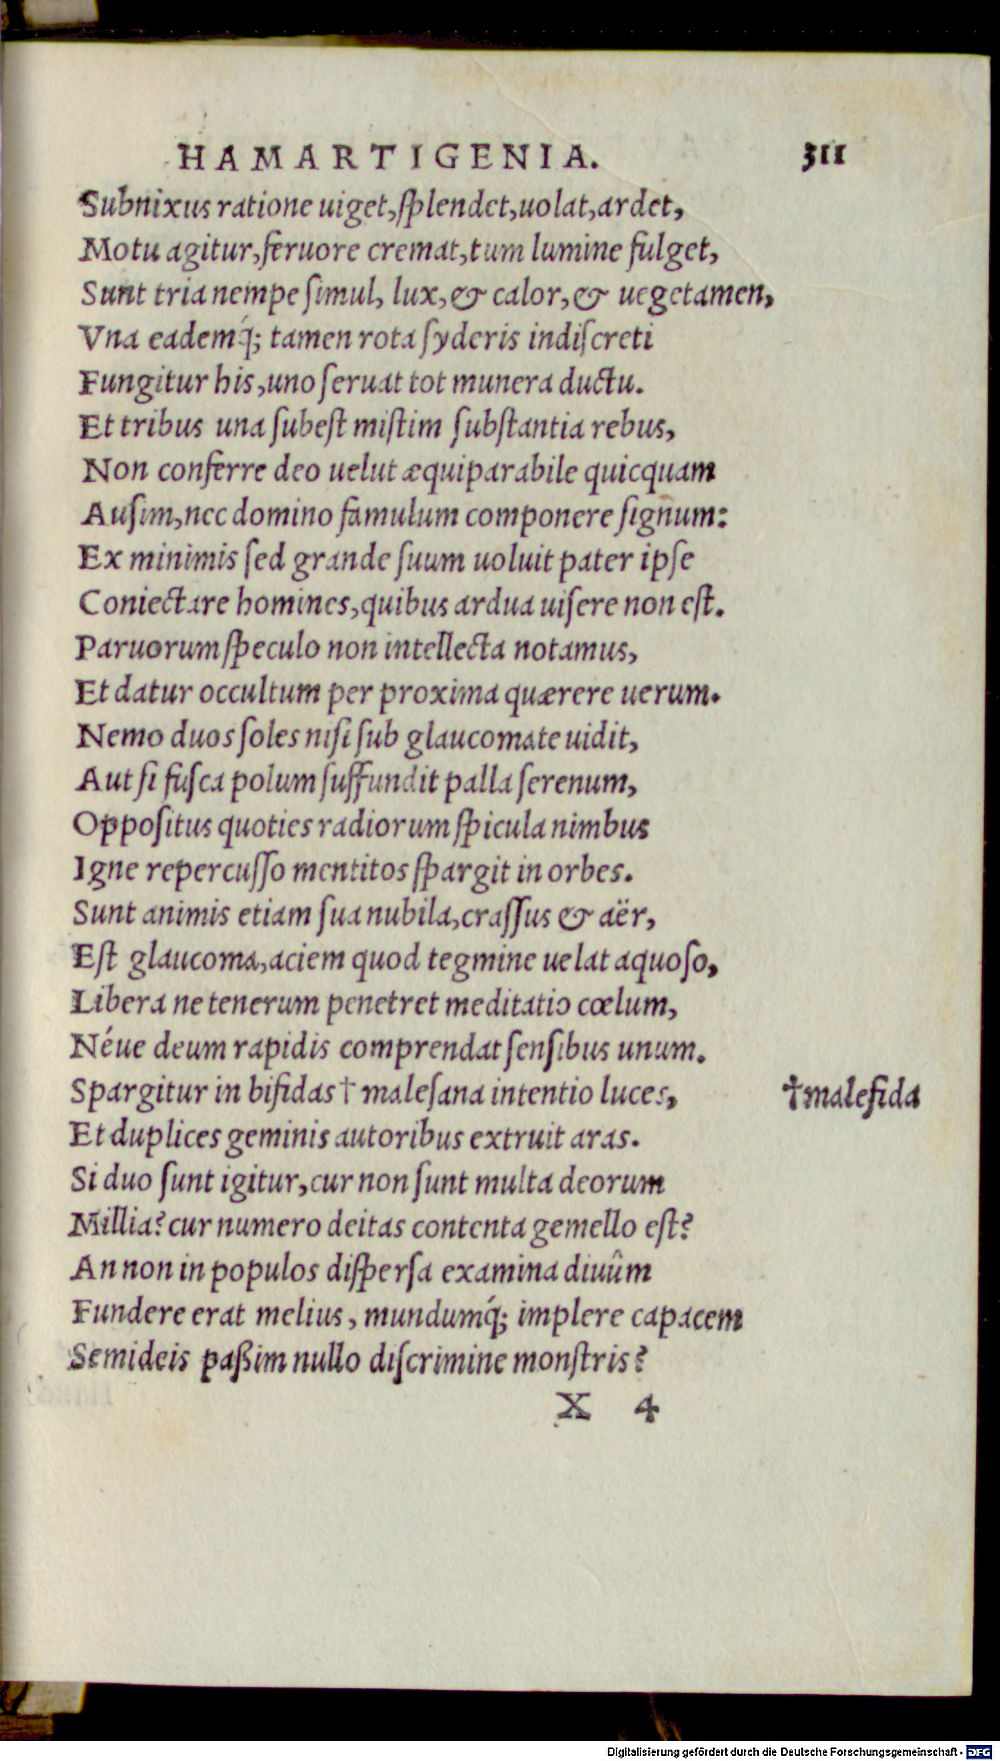 HAMARTIGENIA. 311
Subnixus ratione uiget,ſplendet,uolat,ardet,
Motu agitur,feruore cremat,tum lumine fulget,
Sunt tria nempe ſimul, lux,& calor,& uegetamen,
Vna eademq́; tamen rota ſyderis indiſcreti
Fungitur his,uno ſeruat tot munera ductu.
Et tribus una ſubeſt miſtim ſubſtantia rebus,
Non conferre deo uelut æquiparabile quicquam
Auſim,nec domino famulum componere ſignum:
Ex minimis ſed grande ſuum uoluit pater ipſe
Coniectare homines,quibus ardua uiſere non eſt.
Paruorum ſpeculo non intellecta notamus,
Et datur occultum per proxima quærere uerum.
Nemo duos ſoles niſi ſub glaucomate uidit,
Aut ſi fuſca polum ſuffundit palla ſerenum,
Oppoſitus quoties radiorum ſpicula nimbus
Igne repercuſſo mentitos ſpargit in orbes.
Sunt animis etiam ſua nubila,craſſus & aër,
Eſt glaucoma,aciem quod tegmine uelat aquoſo,
Libera ne tenerum penetret meditatio cœlum,
Néue deum rapidis comprendat ſenſibus unum.
Spargitur in bifidas † maleſana intentio luces, †malefida
Et duplices geminis autoribus extruit aras.
Si duo ſunt igitur,cur non ſunt multa deorum
Millia? cur numero deitas contenta gemello eſt?
An non in populos diſperſa examina diuûm
Fundere erat melius, mundumq́; implere capacem
Semideis paßim nullo diſcrimine monſtris?
X 4
Digitalisierung gefördert durch die Deutsche Forschungsgemeinschaft - DFG